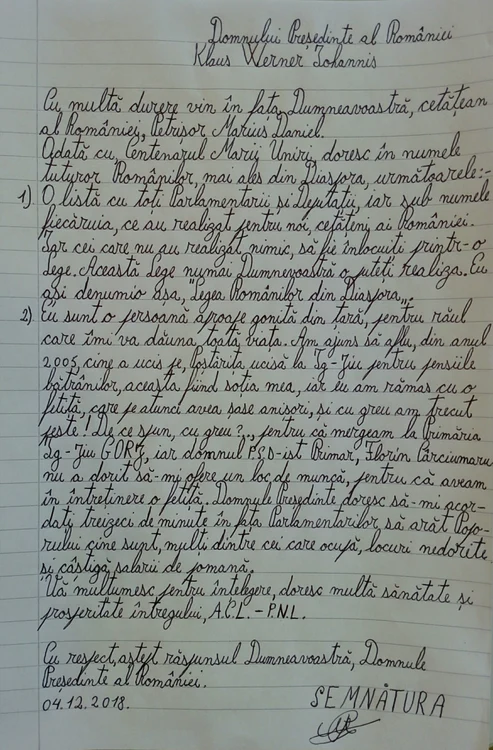 Domnului Președinte al României
Klaus Werner Iohannis
Cu multă durere vin în fața Dumneavoastră, cetățean
al României, Petrișor Marius Daniel.
Odată cu, Centenarul Marii Uniri, doresc în numele
tuturor Românilor, mai ales din Diaspora, următoarele:-
1) O listă cu toți Parlamentarii și Deputații, iar sub numele
fiecăruia, ce au realizat pentru noi, cetățeni ai României.
Iar cei care nu au realizat nimic, să fie înlocuiți printr-o
Lege. Această Lege numai Dumneavoastră o puteți realiza. Eu
ași denumio așa, "Legea Românilor din Diaspora,,.
2) Eu sunt o persoană aproape gonită din țară, pentru răul
care îmi va dăuna toată viața. Am ajuns să aflu, din anul
2005, cine a ucis pe, Poștărița ucisă la Tg-Jiu pentru pensiile
bătrânilor, aceasta fiind soția mea, iar eu am rămas cu o
fetiță, care pe atunci avea șase anișori, și cu greu am trecut
peste! De ce spun, cu greu?., pentru că mergeam la Primăria
Tg-Jiu GORJ, iar domnul PSD-ist Primar, Florin Cârciumaru
nu a dorit să-mi ofere un loc de muncă, pentru că aveam
în întreținere o fetiță. Domnule Președinte doresc să-mi acor-
dați treizeci de minute în fața Parlamentarilor, să arăt Popo-
rului cine sunt, mulți dintre cei care ocupă, locuri nedorite
și câștigă salarii de pomană.
Vă mulțumesc pentru înțelegere, doresc multă sănătate și
prosperitate întregului, A.C.L. - P.N.L.
Cu respect, aștept răspunsul Dumneavoastră, Domnule
Președinte al României.
04.12.2018.
SEMNĂTURA